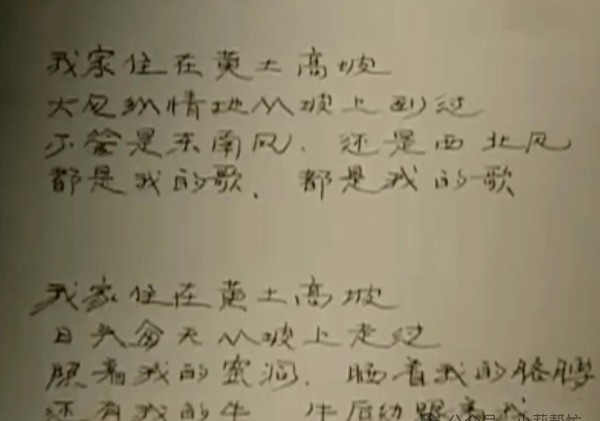 我家住在黄土高坡
大风纵情地从坡上刮过
不管是东南风、还是西北风
都是我的歌、都是我的歌
我家住在黄土高坡
日头每天从坡上走过
照着我的窑洞、晒着我的胳膊
还有我的牛 牛后边跟着我
公众号